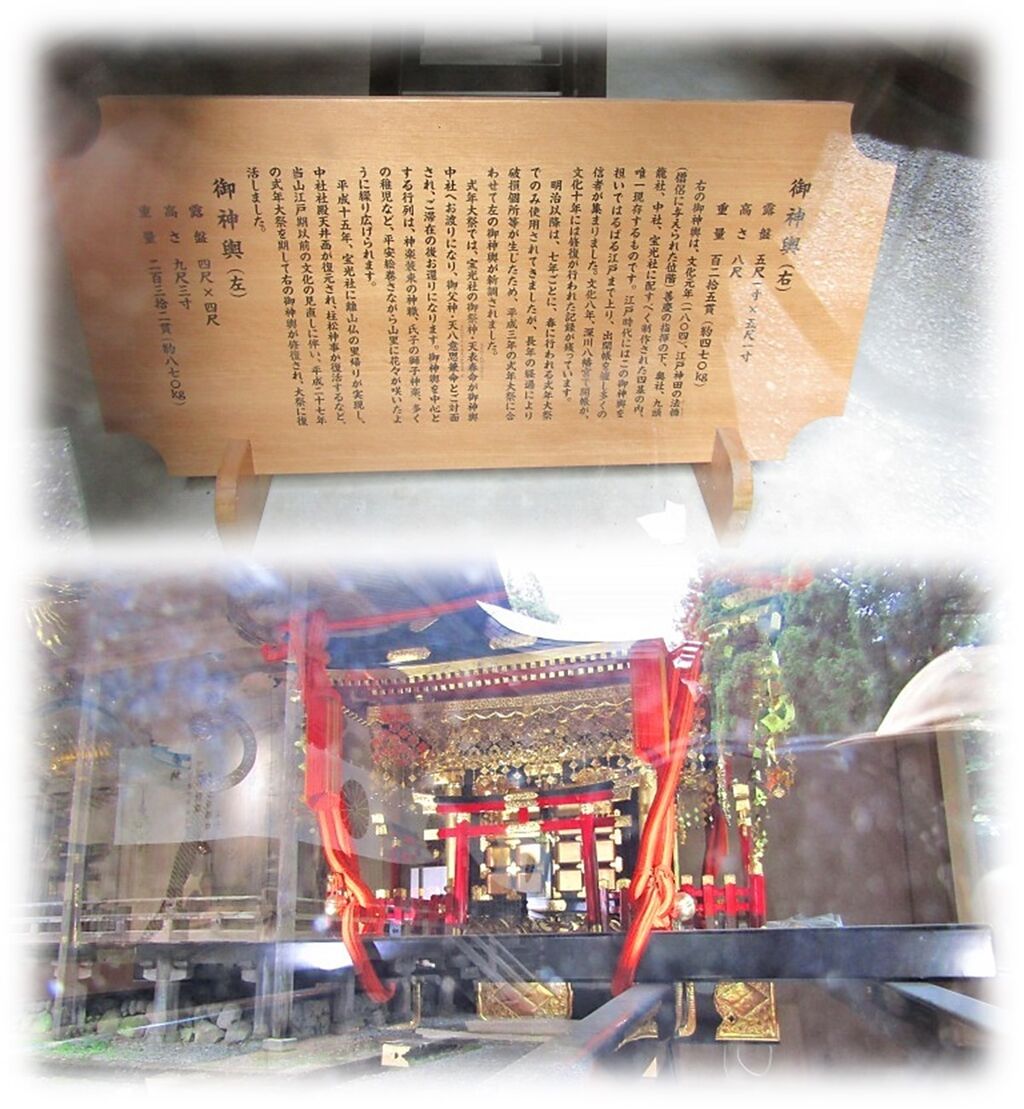 御神輿(右)
露盤 五尺一寸×五尺一寸
高さ 八尺
重量 百二拾五貫(約四七〇kg)
右の御神輿は、文化元年(一八〇四)、江戸神田の法橋
(僧侶に与えられた位階)善慶の指揮の下、奥社、九頭
龍社、中社、宝光社に配すべく制作された四基の内、
唯一現存するものです。江戸時代にはこの御神輿を
担いではるばる江戸まで上り、出開帳を催し多くの
信者が集まりました。文化八年、深川八幡宮で開帳が、
文化十年には修復が行われた記録が残っています。
明治以降は、七年ごとに、春に行われる式年大祭
でのみ使用されてきましたが、長年の経過により
破損個所等が生じたため、平成三年の式年大祭に合
わせて左の御神輿が新調されました。
式年大祭では、宝光社の御祭神・天表春命が御神輿
中社へお渡りになり、御父神・天八意思兼命とご対面
され、ご滞在の後お還りになります。御神輿を中心と
する行列は、神楽装束の神職、氏子の獅子神楽、多く
の稚児など、平安絵巻さながら山里に花々が咲いたよ
うに繰り広げられます。
平成十五年、宝光社に離山仏の里帰りが実現し、
中社社殿天井画が復元され、柱松神事が復活するなど、
当山江戸期以前の文化の見直しに伴い、平成二十七年
の式年大祭を期して右の御神輿が修復され、大祭に復
活しました。
御神輿(左)
露盤 四尺×四尺
高さ 九尺三寸
重量 二百三拾二貫(約八七〇kg)